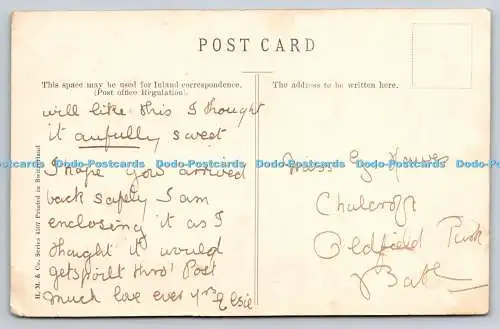 POST CARD
This space may be used for Inland correspondence.
(Post office Regulation).
The address to be written here.
will like this I thought
it awfully sweet
I hope you arrived
back safely I am
enclosing it as I
thought it would
get spoilt thro' Post
much love ever yrs Elsie
Miss G
Chalcroft
Oldfield Park
Bath
H. M. & Co., Series 4207 Printed in Switzerland
Dodo-Postcards Dodo-Postcards Dodo-Postcards Dodo-Postcards Dodo-Postcards